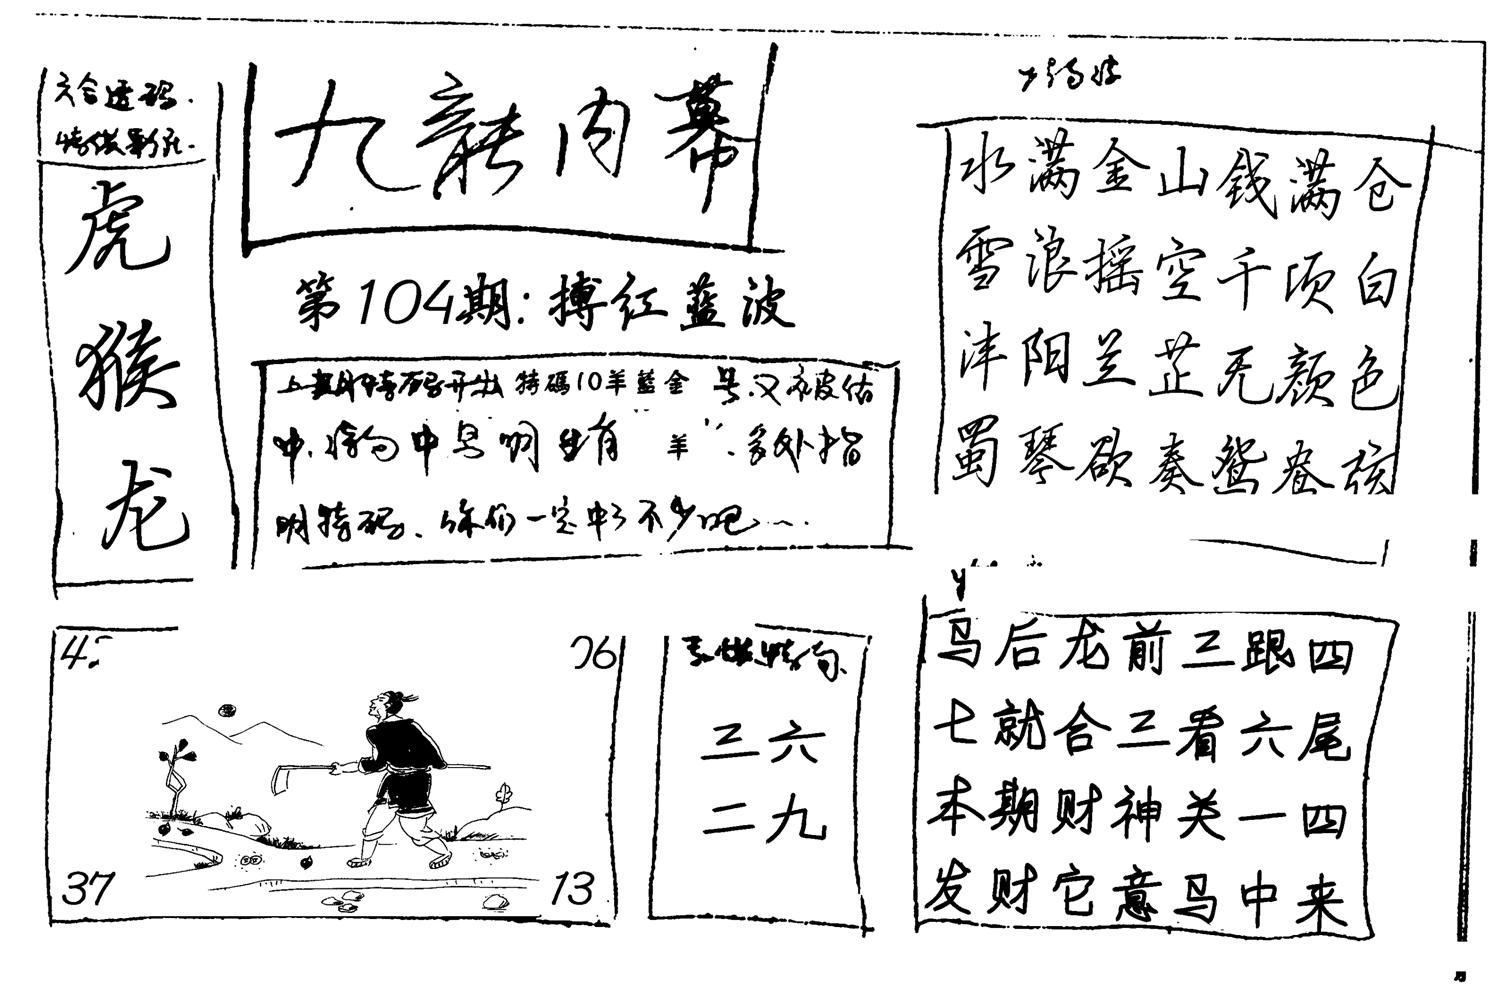 六合透码.
虎
猴
龙
九龍内幕
第104期:搏红蓝波
上期特码开出 特碼10羊藍金 号.又被估
中.特肖中是明生肖“羊”.另外指
明特码、你们一定中了不少吧...
水满金山钱满仓
雪浪摇空千顷白
沣阳兰芷无颜色
蜀琴欲奏鸳鸯弦
06
37
13
三六
二九
马后龙前三跟四
七就合三看六尾
本期财神关一四
发财它意马中来